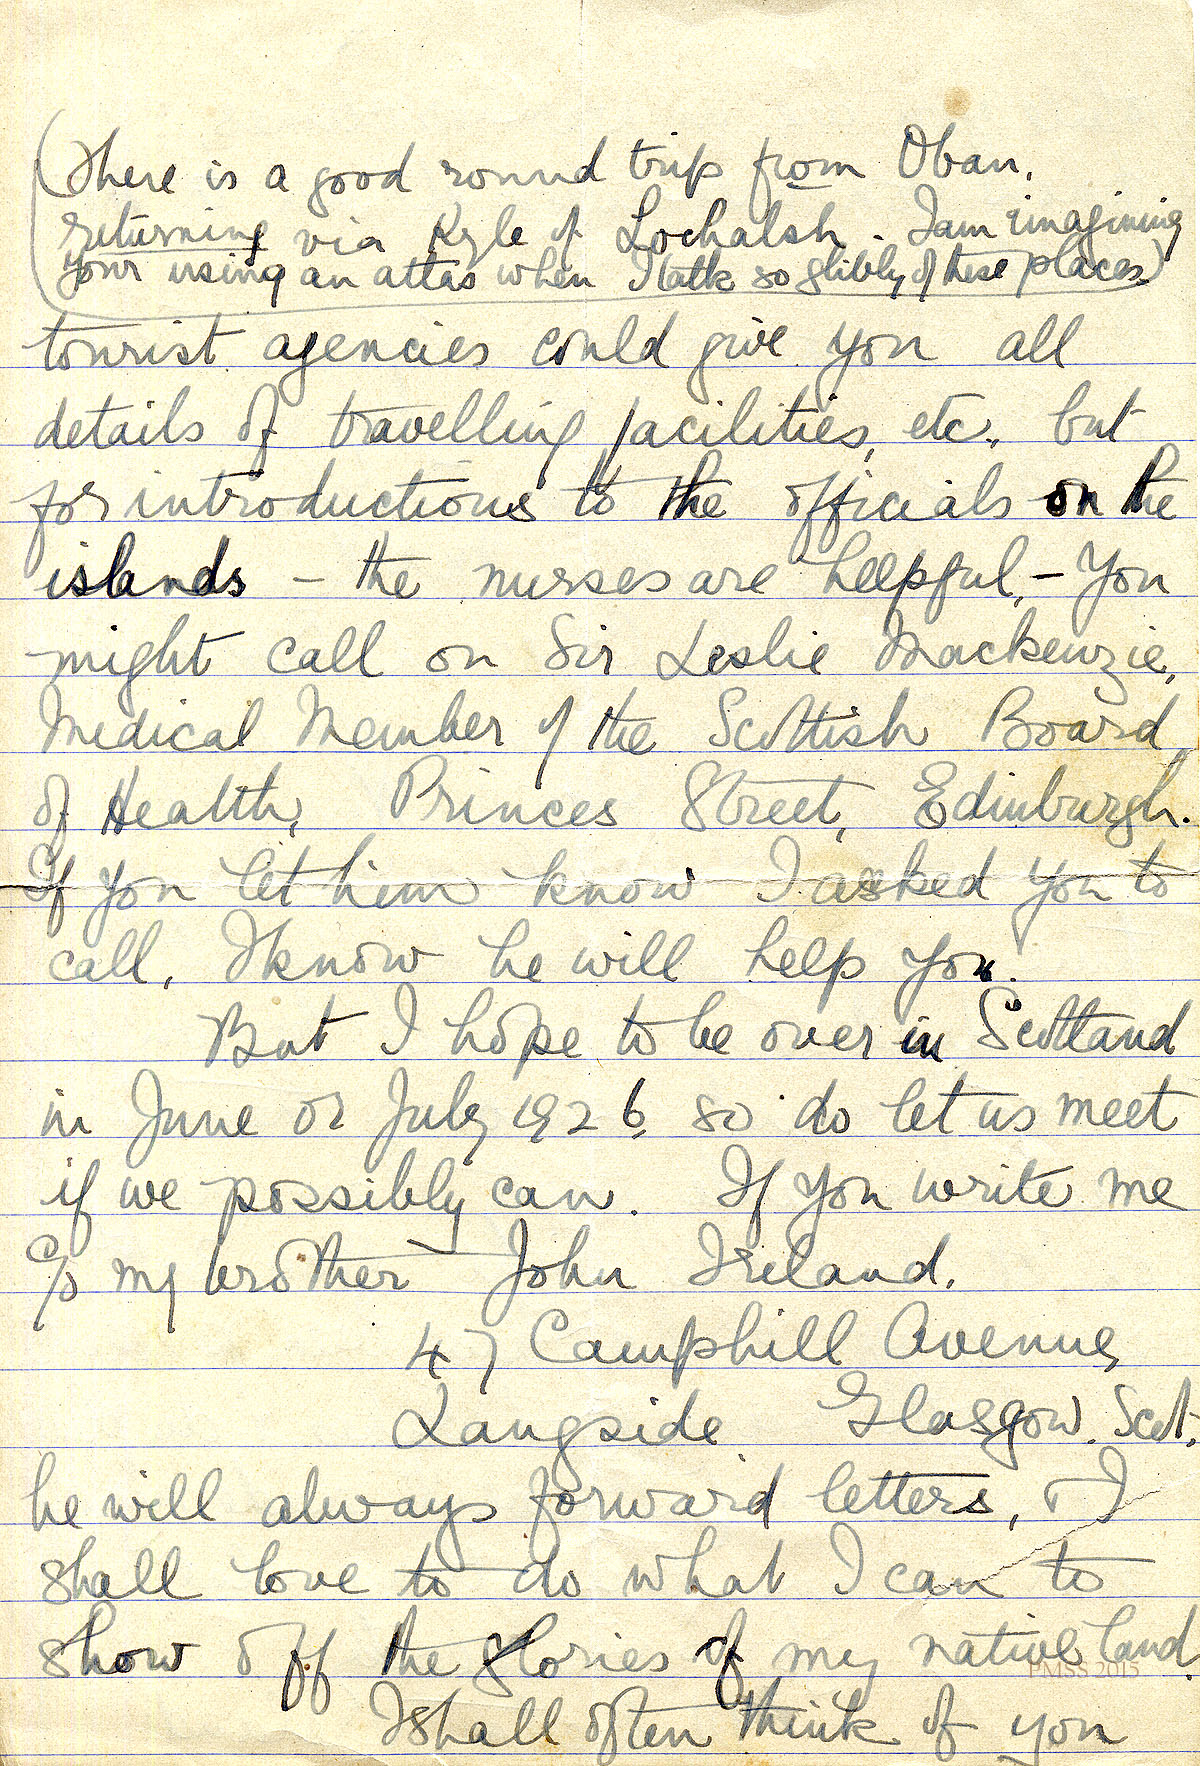 (There is a good round trip from Oban,
returning via Kyle of Lochalsh. I am imagining
your using an atlas when I talk so glibly of these places)
tourist agencies could give you all
details of travelling facilities, etc. but
for introductions to the officials on the
islands – the nurses are helpful, – you
might call on Sir Leslie Mackenzie,
Medical Member of the Scottish Board
of Health, Princes Street, Edinburgh.
If you let him know I asked you to
call, I know he will help you.
But I hope to be over in Scotland
in June or July 1926, so do let us meet
if we possibly can. If you write me
c/o my brother John Ireland.
47 Camphill Avenue,
Langside Glasgow. Scot.
he will always forward letters, & I
shall love to do what I can to
show off the glories of my native land.
PMSS 2015
I shall often think of you